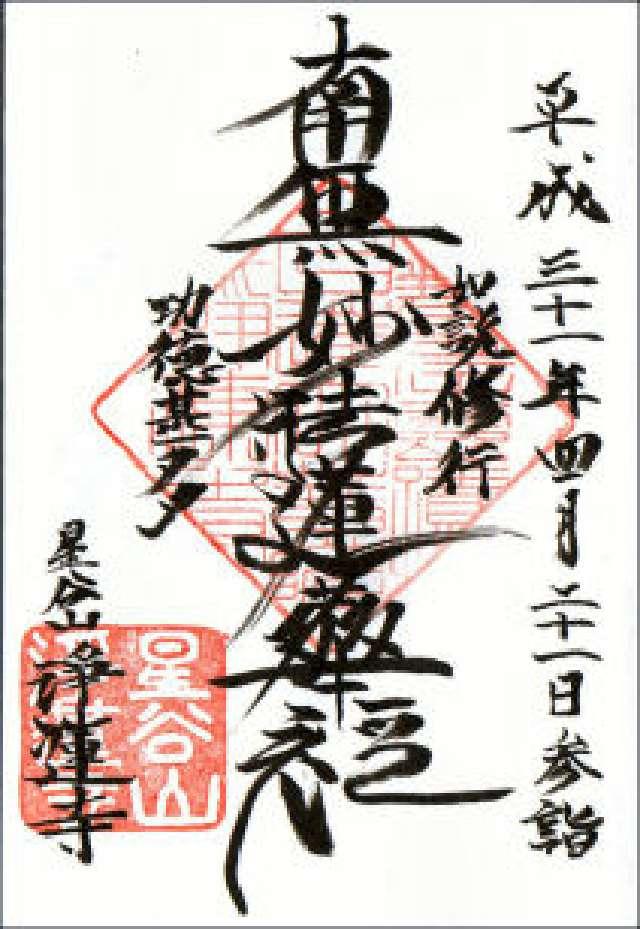 平成三十一年四月二十一日参詣
如説修行
南無妙法蓮華経
功徳甚多
星谷山
浄蓮寺
星谷山
浄蓮寺